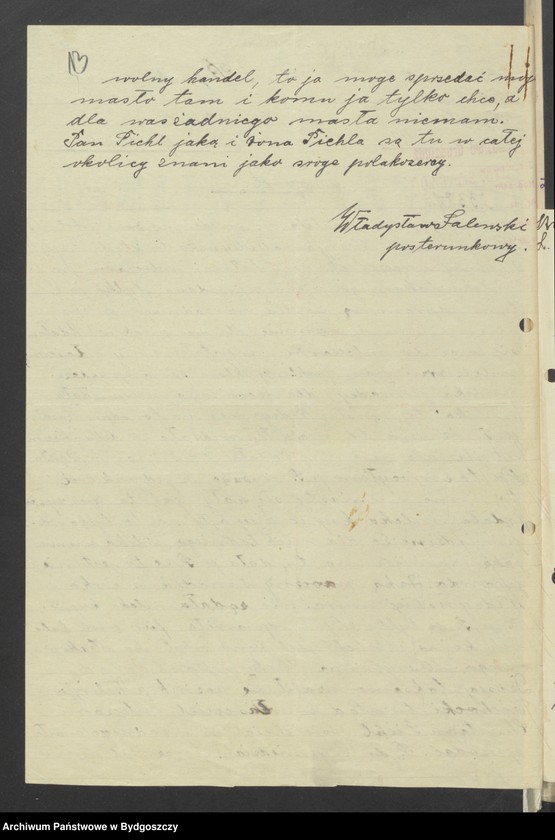 13
wolny handel, to ja mogę sprzedać moje
masło tam i komu ja tylko chcę, a
dla was żadniego masła niemam.
Pan Pichl jaką i żona Pichla są tu w całej
okolicy znani jako srogę polakożercy.
Władysław Salewski
posterunkowy.
Archiwum Państwowe w Bydgoszczy